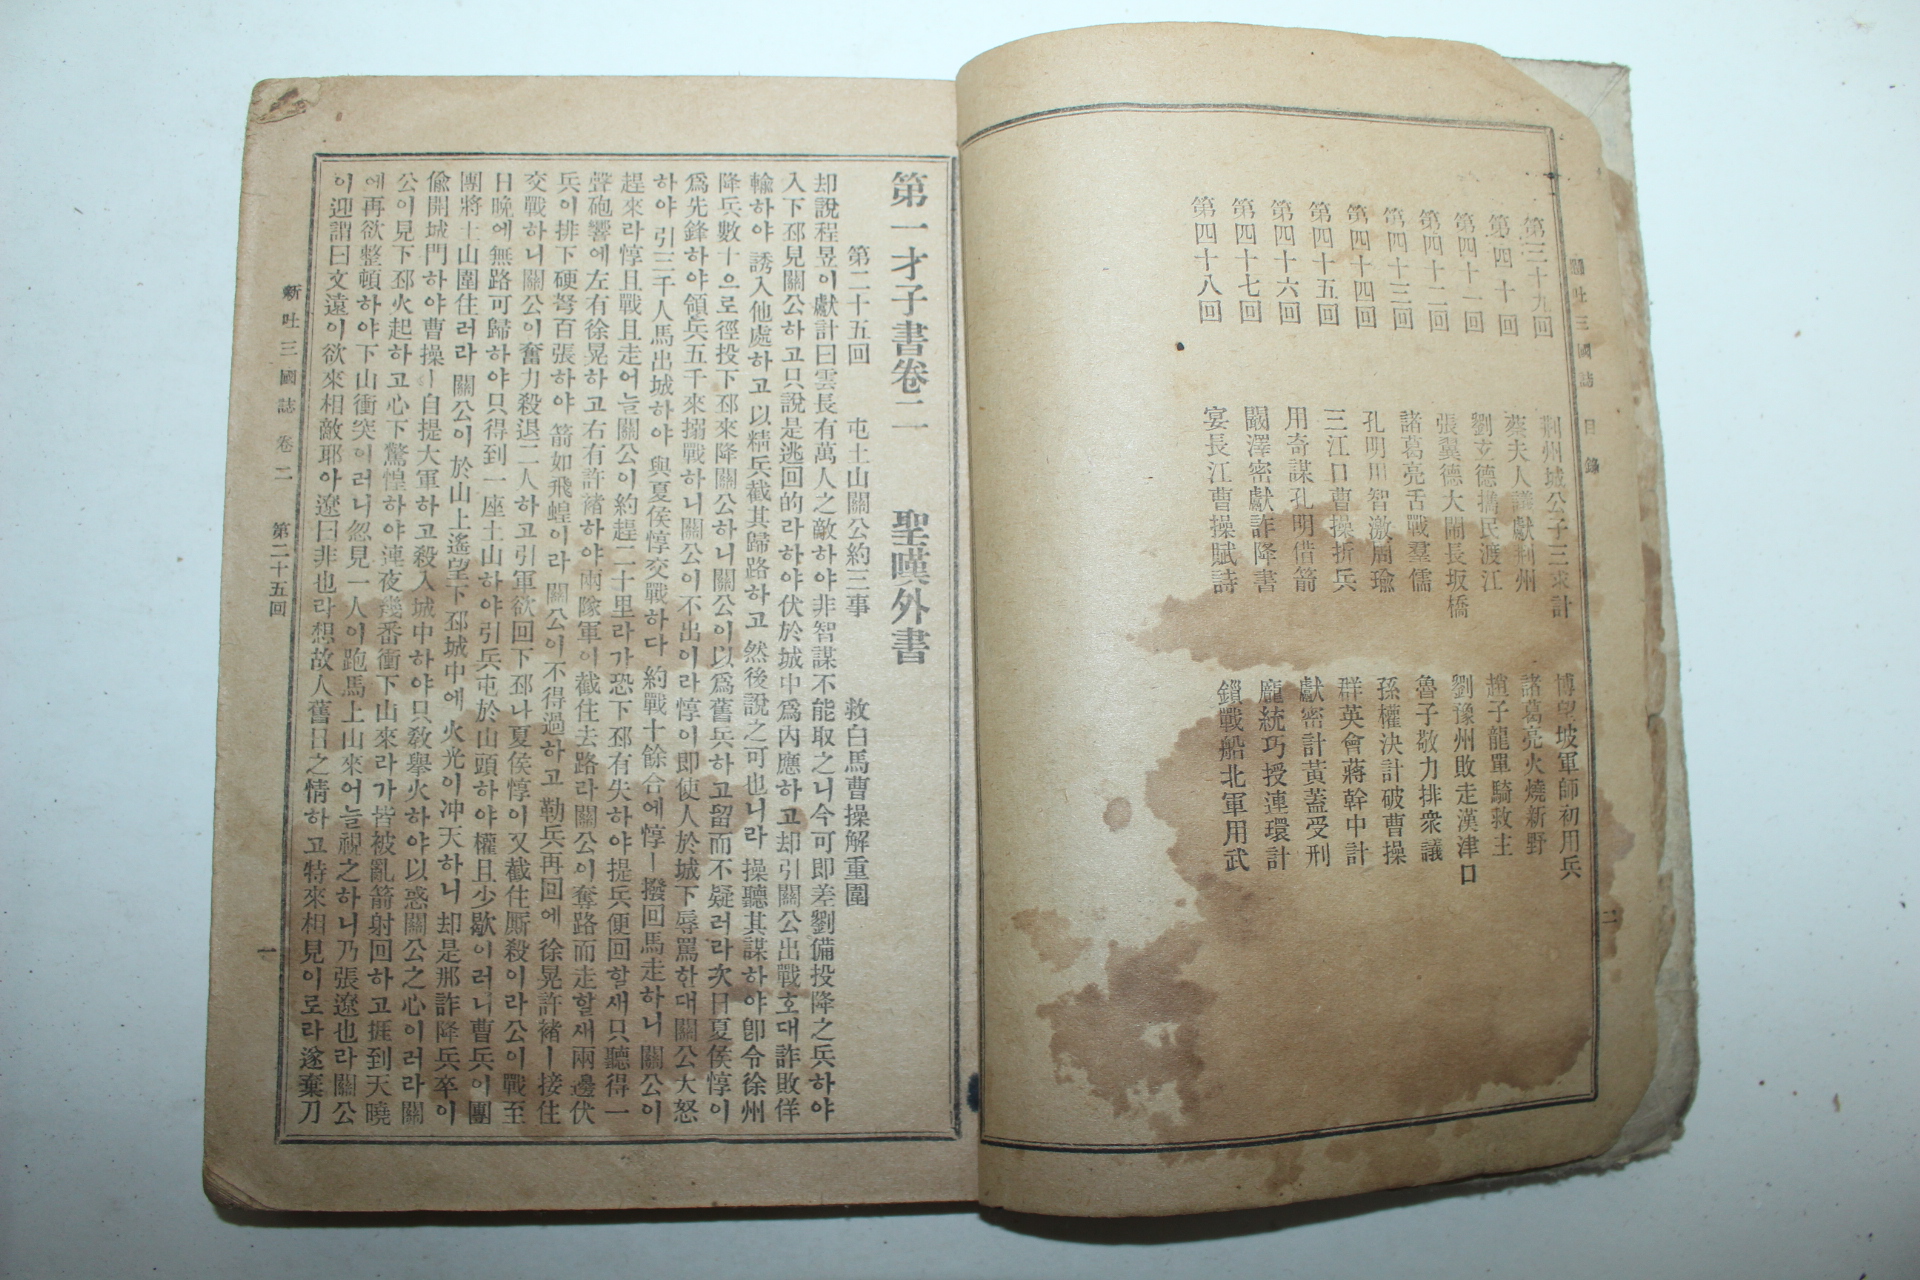 懸吐三國誌 目錄 二
第三十九回 荊州城公子三求計 博望坡軍師初用兵
第四十回 蔡夫人議獻荊州 諸葛亮火燒新野
第四十一回 劉玄德攜民渡江 趙子龍單騎救主
第四十二回 張翼德大鬧長坂橋 劉豫州敗走漢津口
第四十三回 諸葛亮舌戰羣儒 魯子敬力排衆議
第四十四回 孔明用智激周瑜 孫權決計破曹操
第四十五回 三江口曹操折兵 群英會蔣幹中計
第四十六回 用奇謀孔明借箭 獻密計黃蓋受刑
第四十七回 闞澤密獻詐降書 龐統巧授連環計
第四十八回 宴長江曹操賦詩 鎖戰船北軍用武
第一才子書卷二 聖嘆外書
第二十五回 屯土山關公約三事 救白馬曹操解重圍
却說程昱이獻計曰雲長有萬人之敵하야非智謀不能取之니今可即差劉備投降之兵하야
入下邳見關公하고只說是逃回的라하야伏於城中爲內應하고却引關公出戰호대詐敗佯
輸하야誘入他處하고以精兵截其歸路하고然後說之可也니라操聽其謀하야卽令徐州
降兵數十으로徑投下邳來降關公하니關公이以爲舊兵하고留而不疑러라次日夏侯惇이
爲先鋒하야領兵五千來搦戰하니關公이不出이라惇이即使人於城下辱罵한대關公大怒
하야引三千人馬出城하야與夏侯惇交戰하다約戰十餘合에惇ㅣ撥回馬走하니關公이
趕來라惇且戰且走어늘關公이約趕二十里라가恐下邳有失하야提兵便回할새只聽得一
聲砲響에左有徐晃하고右有許褚하야兩隊軍이截住去路라關公이奪路而走할새兩邊伏
兵이排下硬弩百張하야箭如飛蝗이라關公이不得過하고勒兵再回에徐晃許褚ㅣ接住
交戰하니關公이奮力殺退二人하고引軍欲回下邳나夏侯惇이又截住厮殺이라公이戰至
日晚에無路可歸하야只得到一座土山하야引兵屯於山頭하야權且少歇이러니曹兵이團
團將土山圍住러라關公이於山上遙望下邳城中에火光이冲天하니却是那詐降兵卒이
偸開城門하야曹操ㅣ自提大軍하고殺入城中하야只敎擧火하야以惑關公之心이러라關
公이見下邳火起하고心下驚惶하야連夜幾番衝下山來라가皆被亂箭射回하고捱到天曉
에再欲整頓하야下山衝突이러니忽見一人이跑馬上山來어늘視之하니乃張遼也라關公
이迎謂曰文遠이欲來相敵耶아遼曰非也라想故人舊日之情하고特來相見이로라遂棄刀
懸吐三國誌 卷二 第二十五回 一